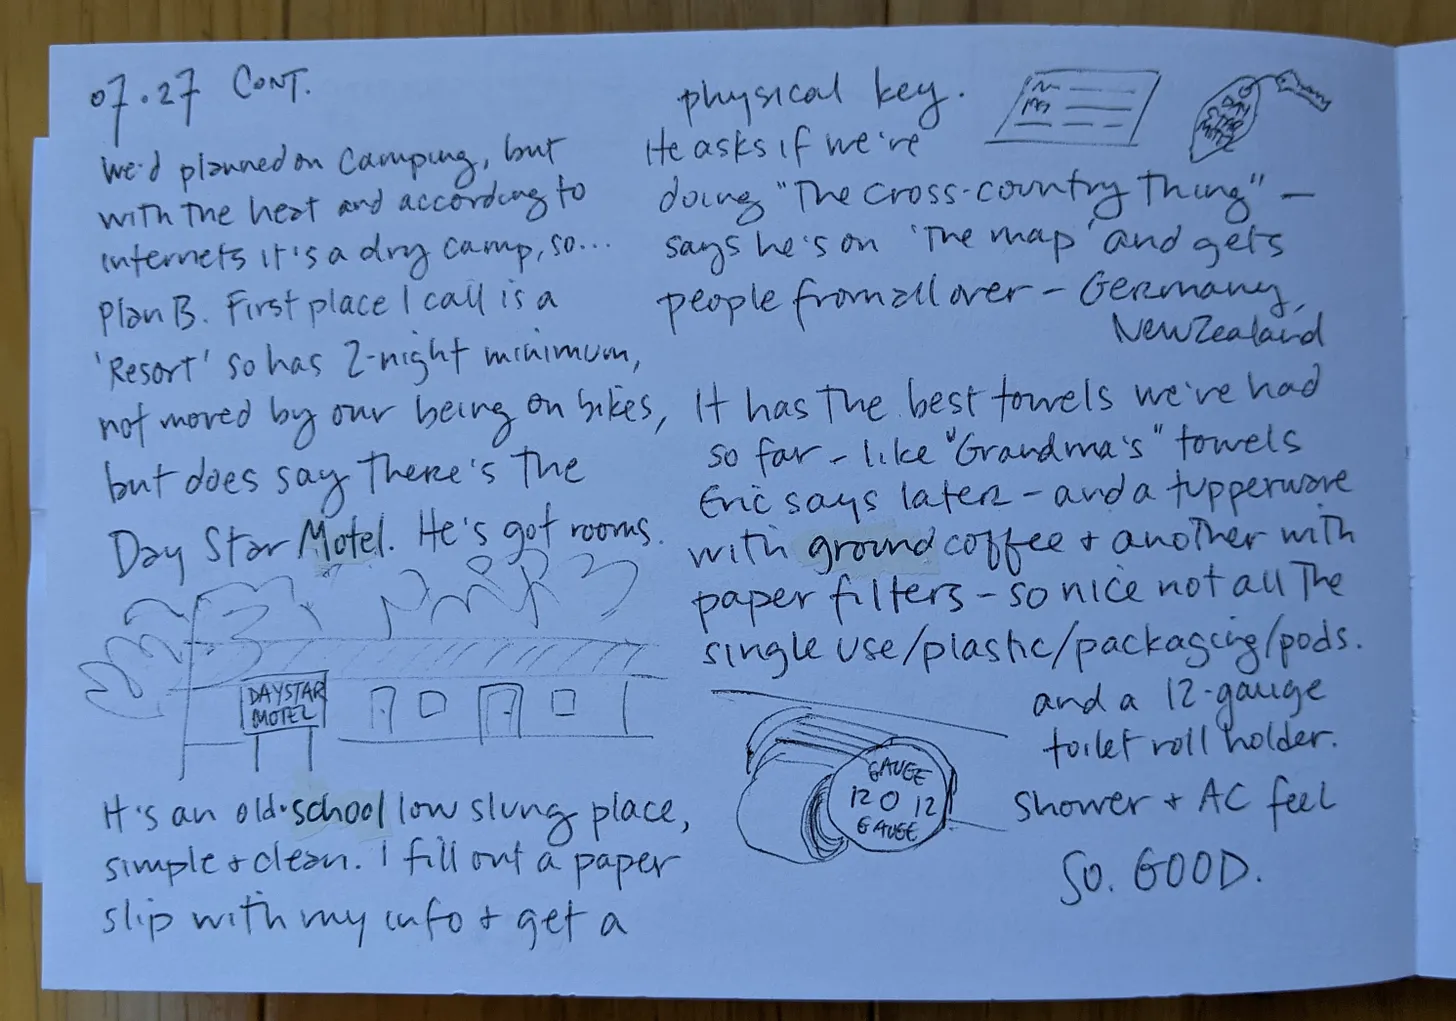 07.27 CONT.
We'd planned on camping, but
with the heat and according to
internets it's a dry camp, so...
Plan B. First place I call is a
'Resort' so has 2-night minimum,
not moved by our being on bikes,
but does say there's the
Day Star Motel. He's got rooms.
DAYSTAR
MOTEL
It's an old-school low slung place,
simple + clean. I fill out a paper
slip with my info + get a
physical key.
He asks if we're
doing "The cross-country thing" –
says he's on 'the map' and gets
people from all over – Germany,
New Zealand
It has the best towels we've had
so far – like "Grandma's" towels
Eric says later – and a tupperware
with ground coffee + another with
paper filters – so nice not all the
single use/plastic/packaging/pods.
and a 12-gauge
toilet roll holder.
GAUGE
12 12
GAUGE
Shower + AC feel
SO. GOOD.